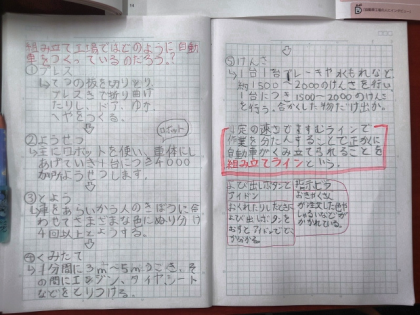 組み立て工場ではどのように自動
車をつくっているのだろう？
①プレス
↳てつの板を切りとり
プレスきで折り曲げ
たりし、ドア、ゆか、
へやをつくる。
②ようせつ
ロボット
↳主にロボットを使い、車体にし
あげていき1台につき4000
か所ようせつします。
③とそう
↳車をあらいから人のきぼうに合
わせてさまざまな色にぬり分け
4回以上とようする。
④くみたて
↳1分間に3m～5mうごき、そ
の間にエンジン、タイヤ、シート
などをとりつける。
⑤けんさ
↳1台1台ブレーキや水もれなど
約1500～2000のけんさを行い
1台につき1500～2000のけんさ
を行う。合かくした物だけ出か。
一定の速さでますすむラインで
作業を分たんすることで正かくに
自動車がくみ立てられることを
組み立てラインという。
よび出しボタンと
アイドン
おくれたりしたときに
よび出しボタンを
おすとアイドンで
たかながる
指示ビラ
おきゃくさん
が注文した色や
しゅるいなどが
かかれている。